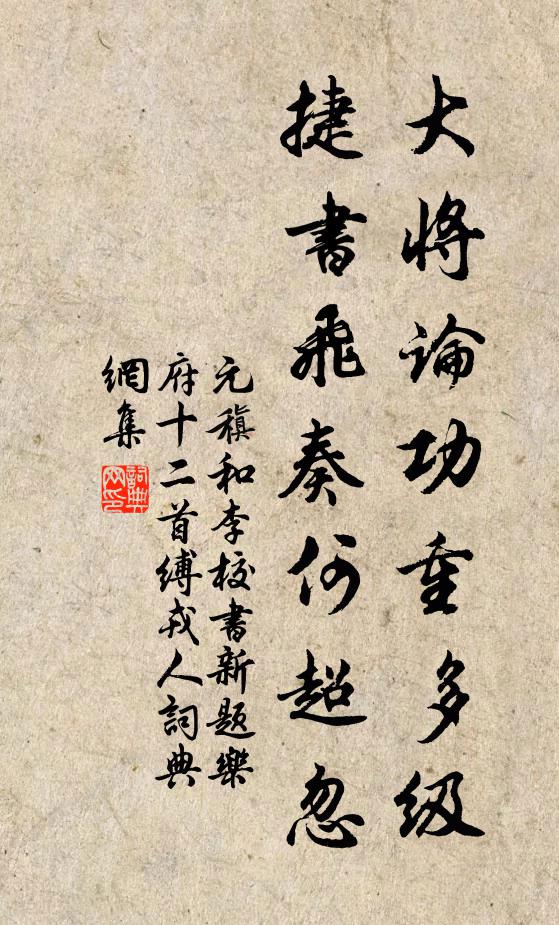 大將論功重多級
捷書飛奏何超忽
元稹和李校書新題樂
府十二首縛戎人詞典
網集
詞典网印